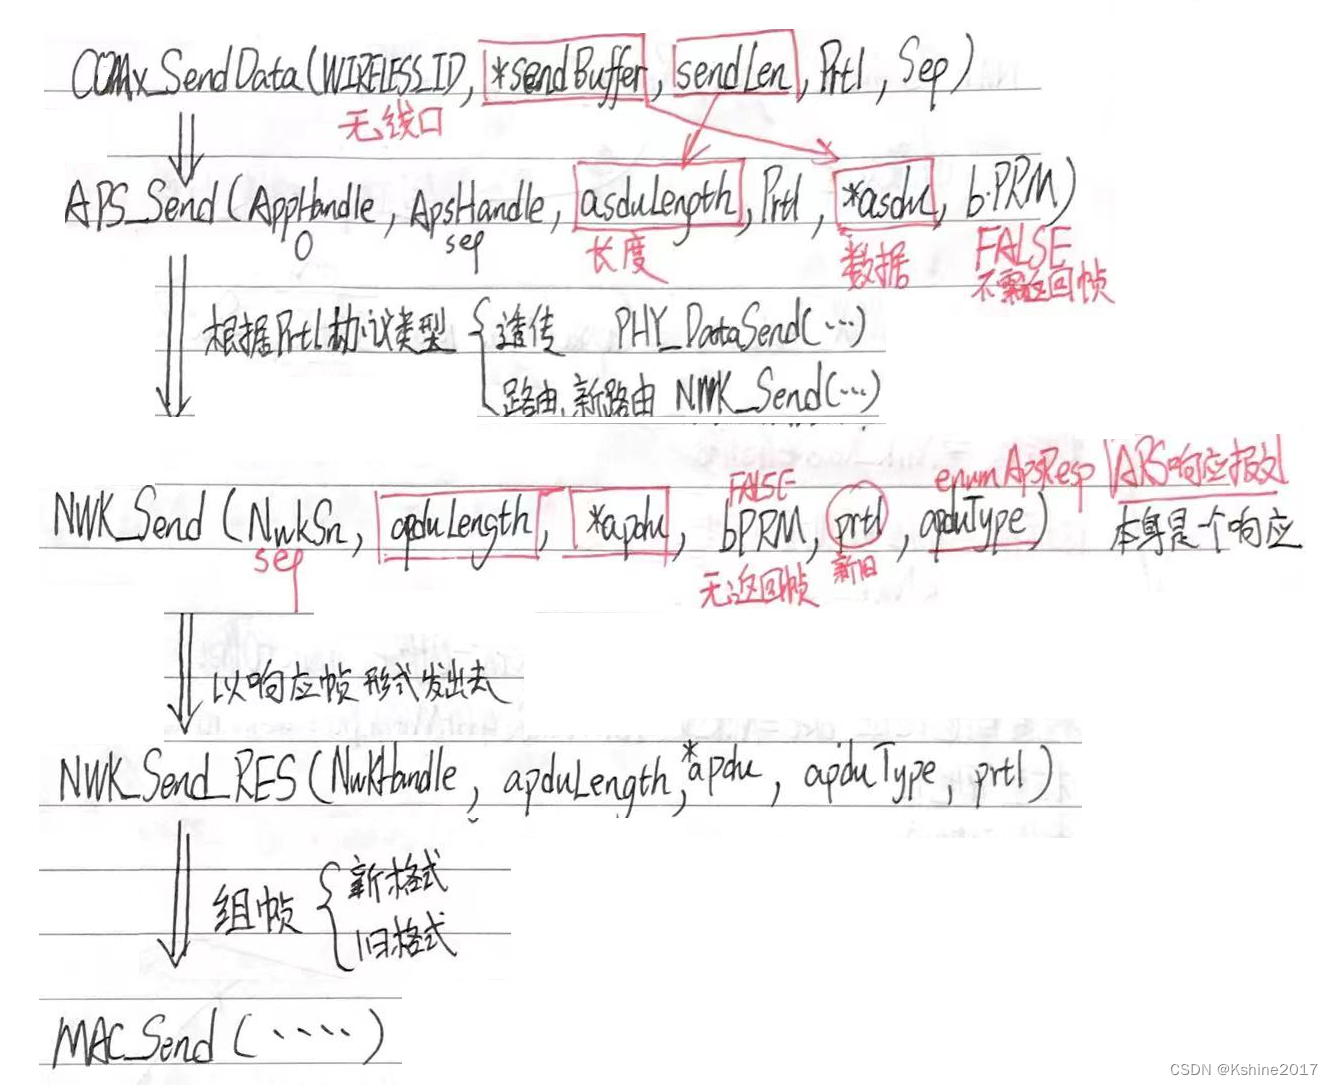 COMx_SendData(WIRELESS_ID, *sendBuffer, sendLen, Prtl, Sep)
无线口
APS_Send(AppHandle, ApsHandle, asduLength, Prtl, *asdu, bPRM)
0 sep 长度 数据 FALSE
不需返回帧
根据Prtl协议类型 { 透传 PHY_DataSend(...)
路由、新路由 NWK_Send(...)
FALSE enumApsResp |APS响应报文
NWK_Send(NwkSn, apduLength, *apdu, bPRM, prtl, apduType) 本身是个响应
sep 无返回帧 新旧
以响应帧形式发出去
NWK_Send_RES(NwkHandle, apduLength, *apdu, apduType, prtl)
组帧 { 新格式
旧格式
MAC_Send(....)
CSDN @Kshine2017